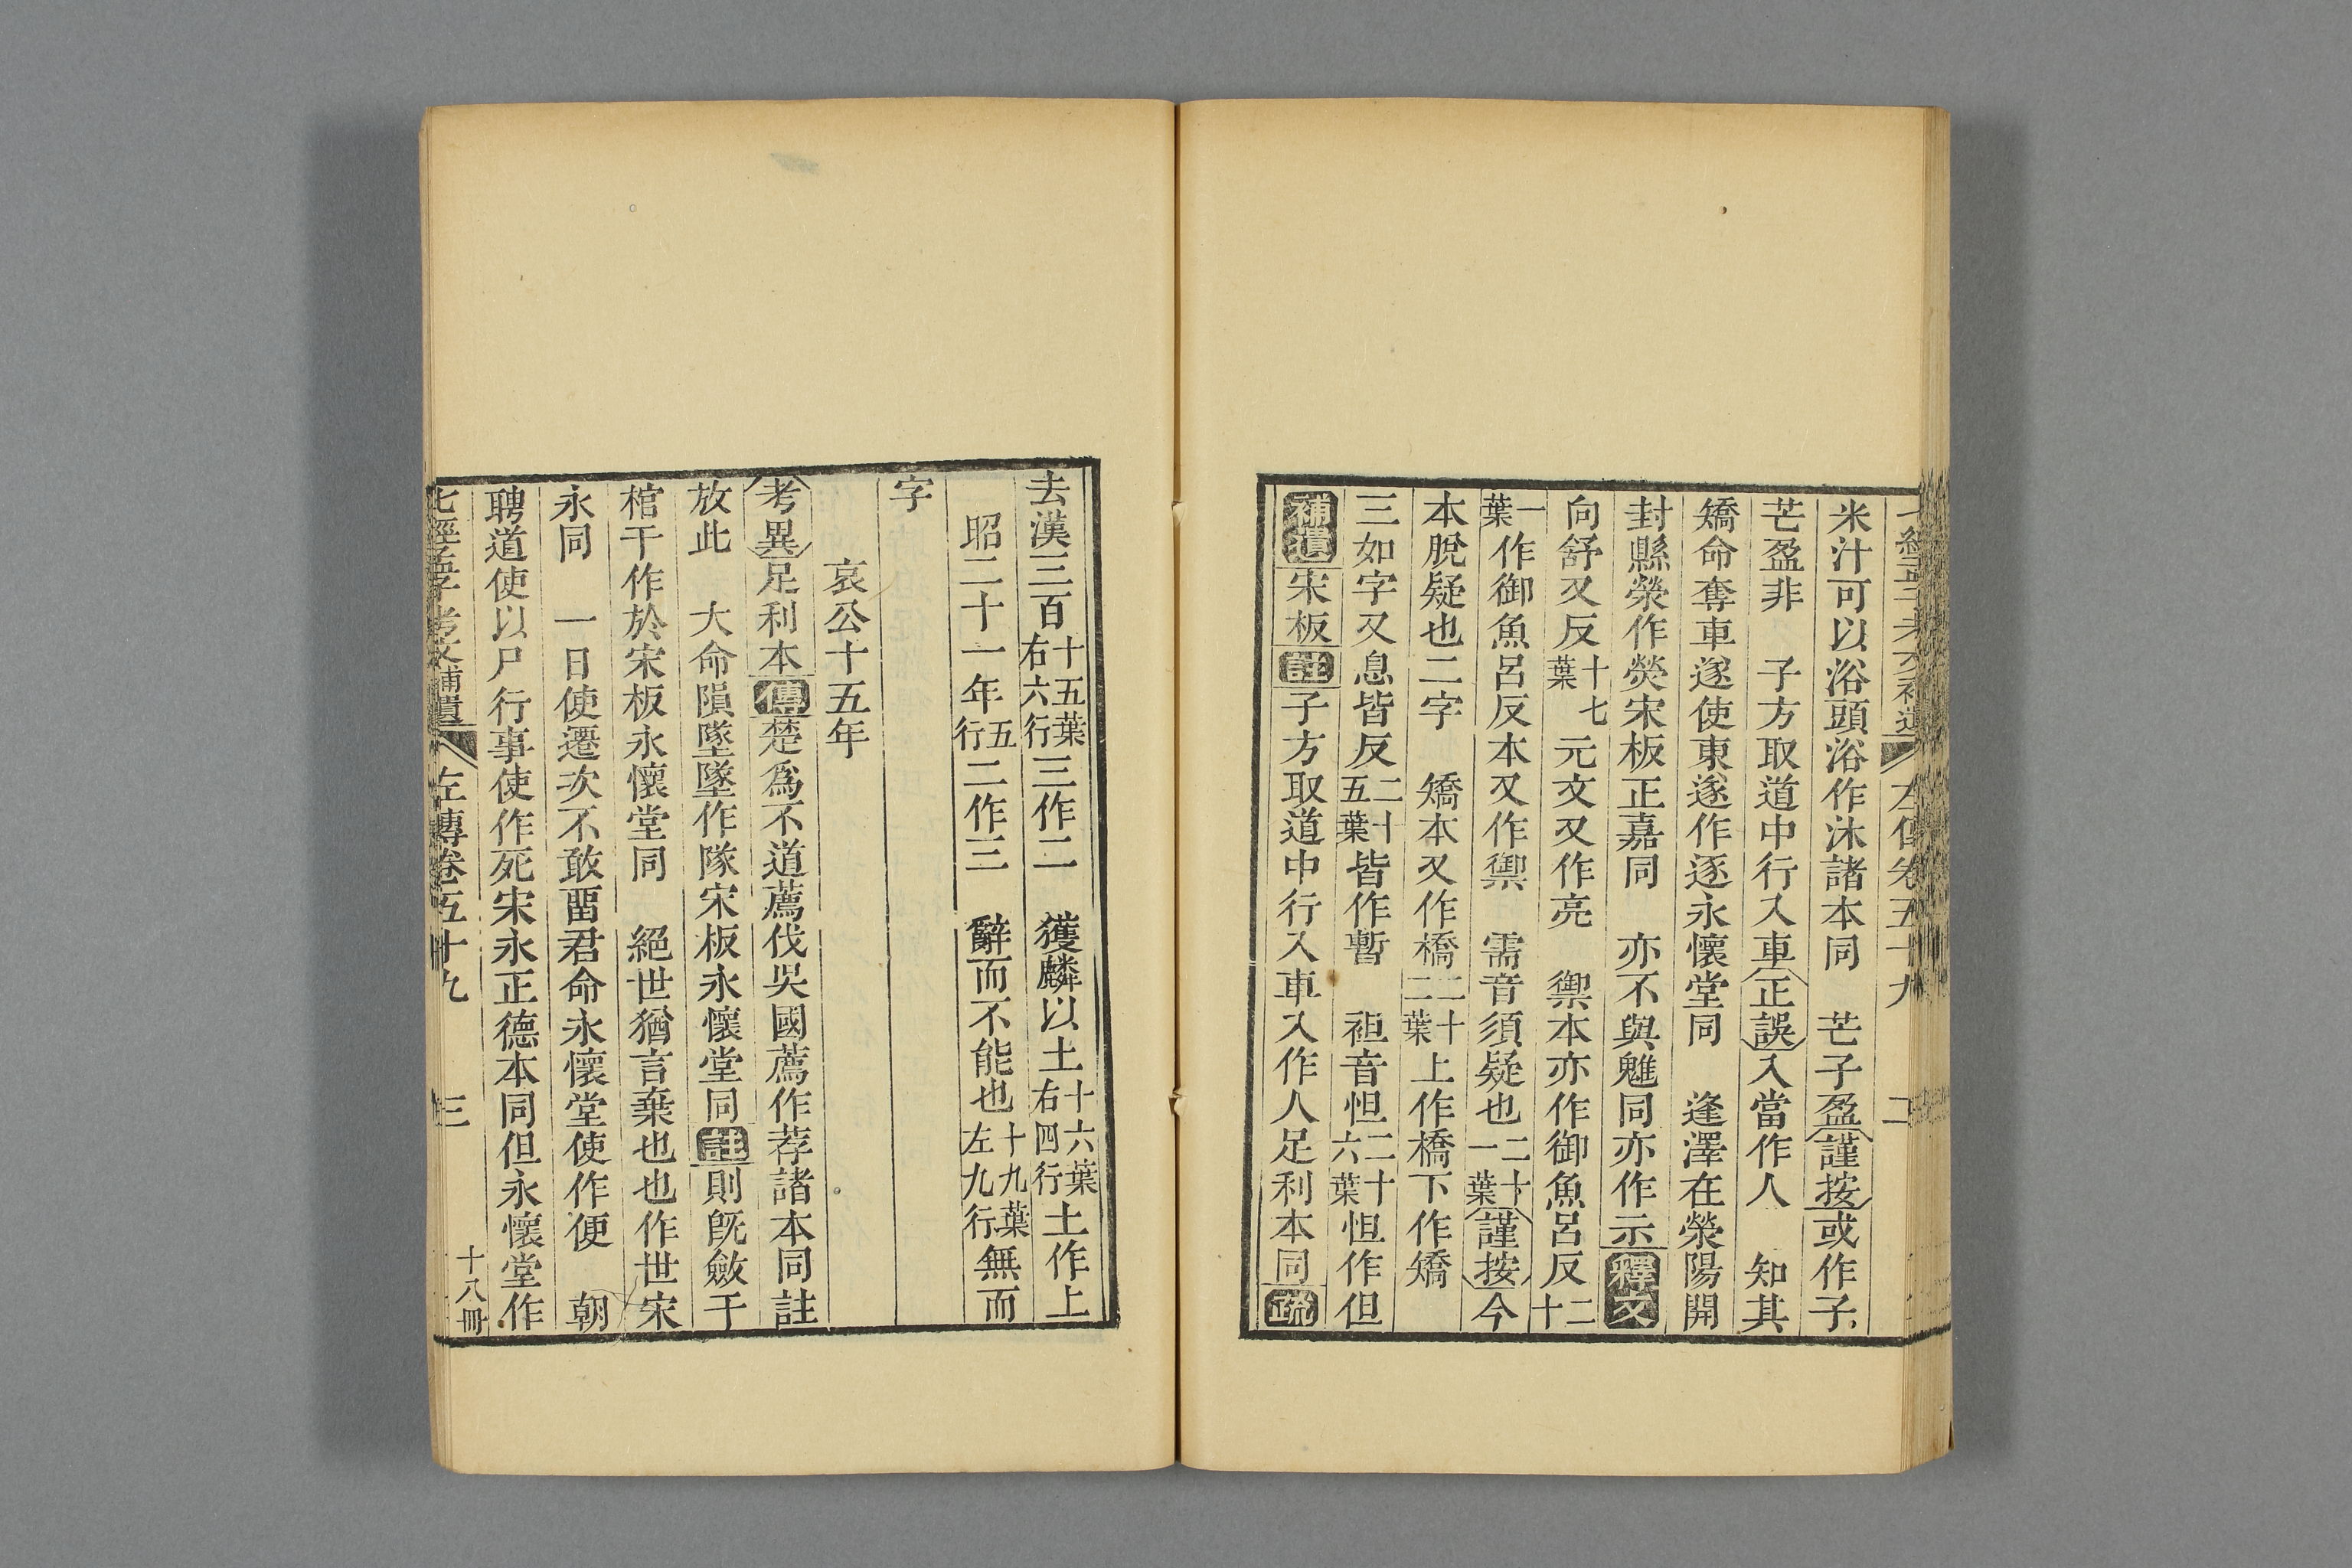 米汁可以浴頭浴作沐諸本同　芒子盈謹按或作子
芒盈非　子方取道中行入車正誤入當作人　知其
矯命奪車遂使東遂作逐永懷堂同　逢澤在滎陽開
封縣滎作熒宋板正嘉同　亦不與魋同亦作示釋文
向舒又反十七葉元文又作亮　禦本亦作御魚呂反二十
一葉作御魚呂反本又作禦　需音須疑也二十一葉謹按今
本脫疑也二字　矯本又作橋二十二葉上作橋下作矯
三如字又息皆反二十五葉皆作暫　袒音怛二十六葉怛作但
補遺宋板註子方取道中行入車入作人足利本同疏
去漢三百十五葉右六行三作二　獲麟以土十六葉右四行土作上
昭二十一年五行二作三　辭而不能也十九葉左九行無而
字
哀公十五年
考異足利本傳楚爲不道薦伐吳國薦作荐諸本同註
放此　大命隕墜墜作隊宋板永懷堂同註則旣斂于
棺于作於宋板永懷堂同　絕世猶言棄也也作世宋
永同　一日使遷次不敢畱君命永懷堂使作便　朝
聘道使以尸行事使作死宋永正德本同但永懷堂作
七經孟子考文補遺　左傳卷五十九　三　十八冊